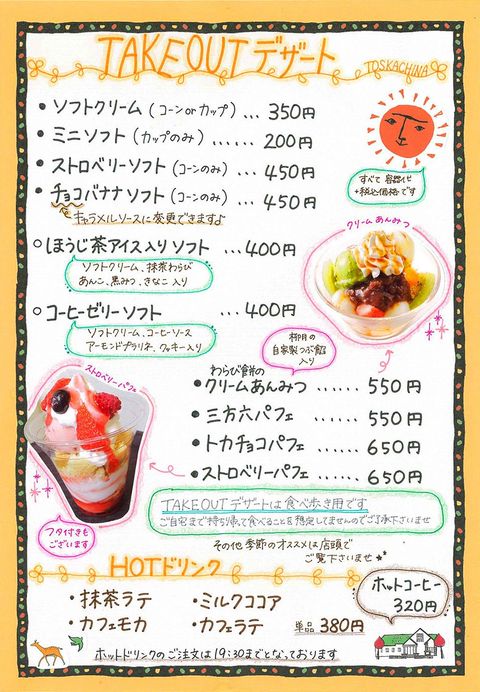 TAKEOUT デザート
TOSKACHINA
• ソフトクリーム (コーン or カップ) ... 350円
• ミニソフト (カップのみ) ...... 200円
• ストロベリーソフト (コーンのみ) ... 450円
• チョコバナナソフト (コーンのみ) ... 450円
キャラメルソースに変更できます♪
すべて 容器代
+税込価格です
○ ほうじ茶アイス入りソフト ... 400円
ソフトクリーム、抹茶わらび
あんこ、黒みつ、きなこ 入り
クリームあんみつ
○ コーヒーゼリーソフト ... 400円
ソフトクリーム、コーヒーソース
アーモンドプラリネ、クッキー入り
柳月の
自家製つぶ餡
入り
ストロベリーパフェ
わらび餅の
• クリームあんみつ ...... 550円
• 三方六パフェ ...... 550円
• トカチョコパフェ ... 650円
• ストロベリーパフェ ... 650円
フタ付きも
ございます
TAKEOUTデザートは食べ歩き用です
ご自宅まで持ち帰って食べることを想定してませんのでご了承下さいませ
その他 季節のオススメは店頭で
ご覧下さいませ
HOTドリンク
ホットコーヒー
320円
• 抹茶ラテ • ミルクココア
• カフェモカ • カフェラテ 単品 380円
ホットドリンクのご注文は19:30までとなっております